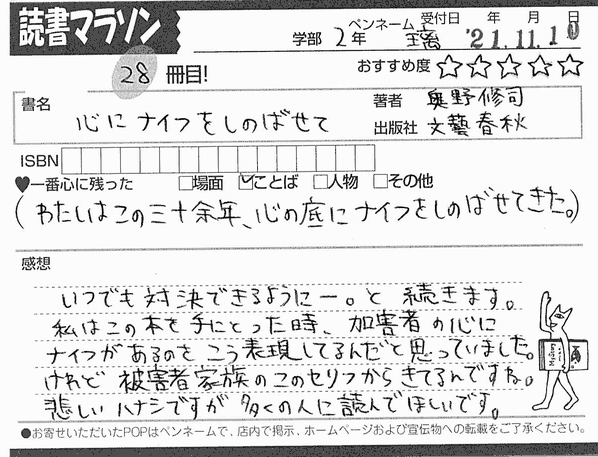 読書マラソン
学部 2年 ペンネーム 璃 受付日 年 月 日 '21.11.10
28 冊目!
おすすめ度 ☆☆☆☆☆
書名 心にナイフをしのばせて
著者 奥野修司
出版社 文藝春秋
ISBN
♥一番心に残った □場面 ☑ことば □人物 □その他
(わたしはこの三十余年、心の底にナイフをしのばせてきた。)
感想
いつでも対決できるようにー。と続きます。
私はこの本を手にとった時、加害者の心に
ナイフがあるのをこう表現してるんだと思っていました。
けれど被害者家族のこのセリフからきてるんですね。
悲しいハナシですが多くの人に読んでほしいです。
●お寄せいただいたPOPはペンネームで、店内で掲示、ホームページおよび宣伝物への転載をご了承ください。